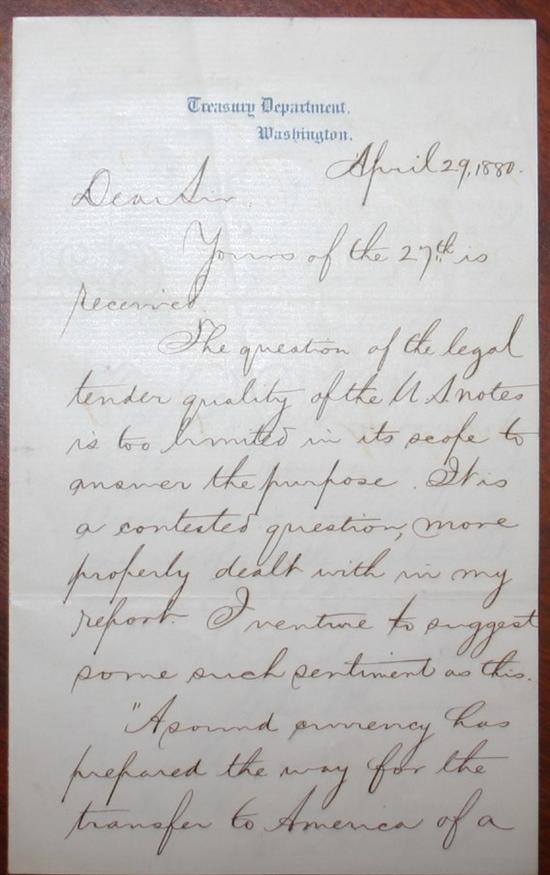 Treasury Department.
Washington.
April 29, 1880.
Dear Sir,
Yours of the 27th is
received.
The question of the legal
tender quality of the U. S notes
is too limited in its scope to
answer the purpose. It is
a contested question, more
properly dealt with in my
report. I venture to suggest
some such sentiment as this.
"A sound currency has
prepared the way for the
transfer to America of a